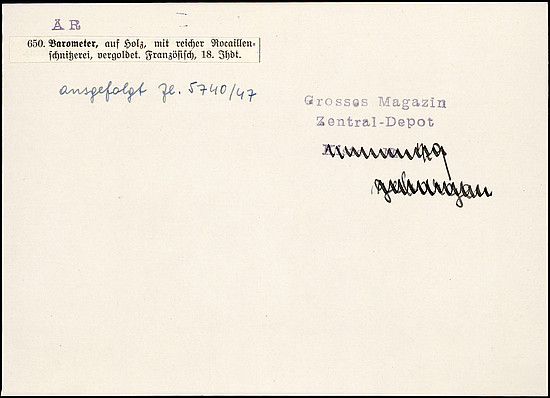 ÄR
650. Barometer, auf Holz, mit reicher Rocaillen-
schnitzerei, vergoldet. Französisch, 18. Jhdt.
ausgefolgt Zl. 5740/47
Grosses Magazin
Zentral-Depot